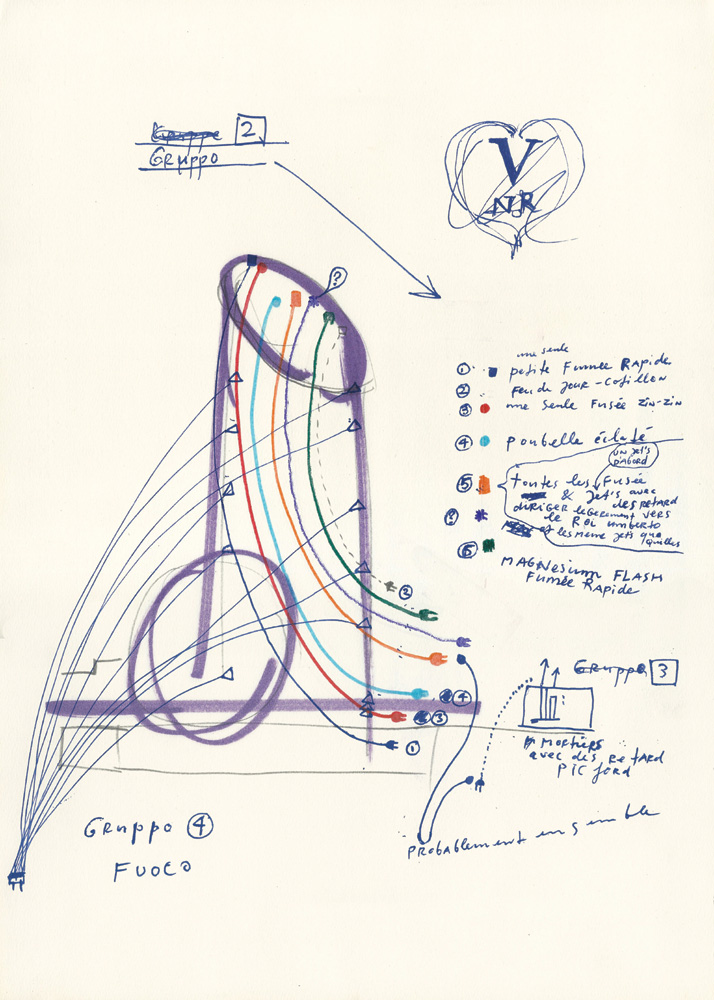 2
Gruppo
V
N.R
?
une seule
① petite Fumée Rapide
② feu de jour - cotillon
③ une seule Fusée zin-zin
④ poubelle éclaté
un jet's
d'abord
⑤ toutes les Fusée
& Jet's avec
des retard
diriger legerement vers
le Roi Umberto
et les meme jets que
? 
⑥ MAGNesium FLASH
Fumée Rapide
②
④
③
①
Gruppo 3
Mortiers
avec des retard
PIC ford
PRobablement ensemble
Gruppo ④
Fuoco